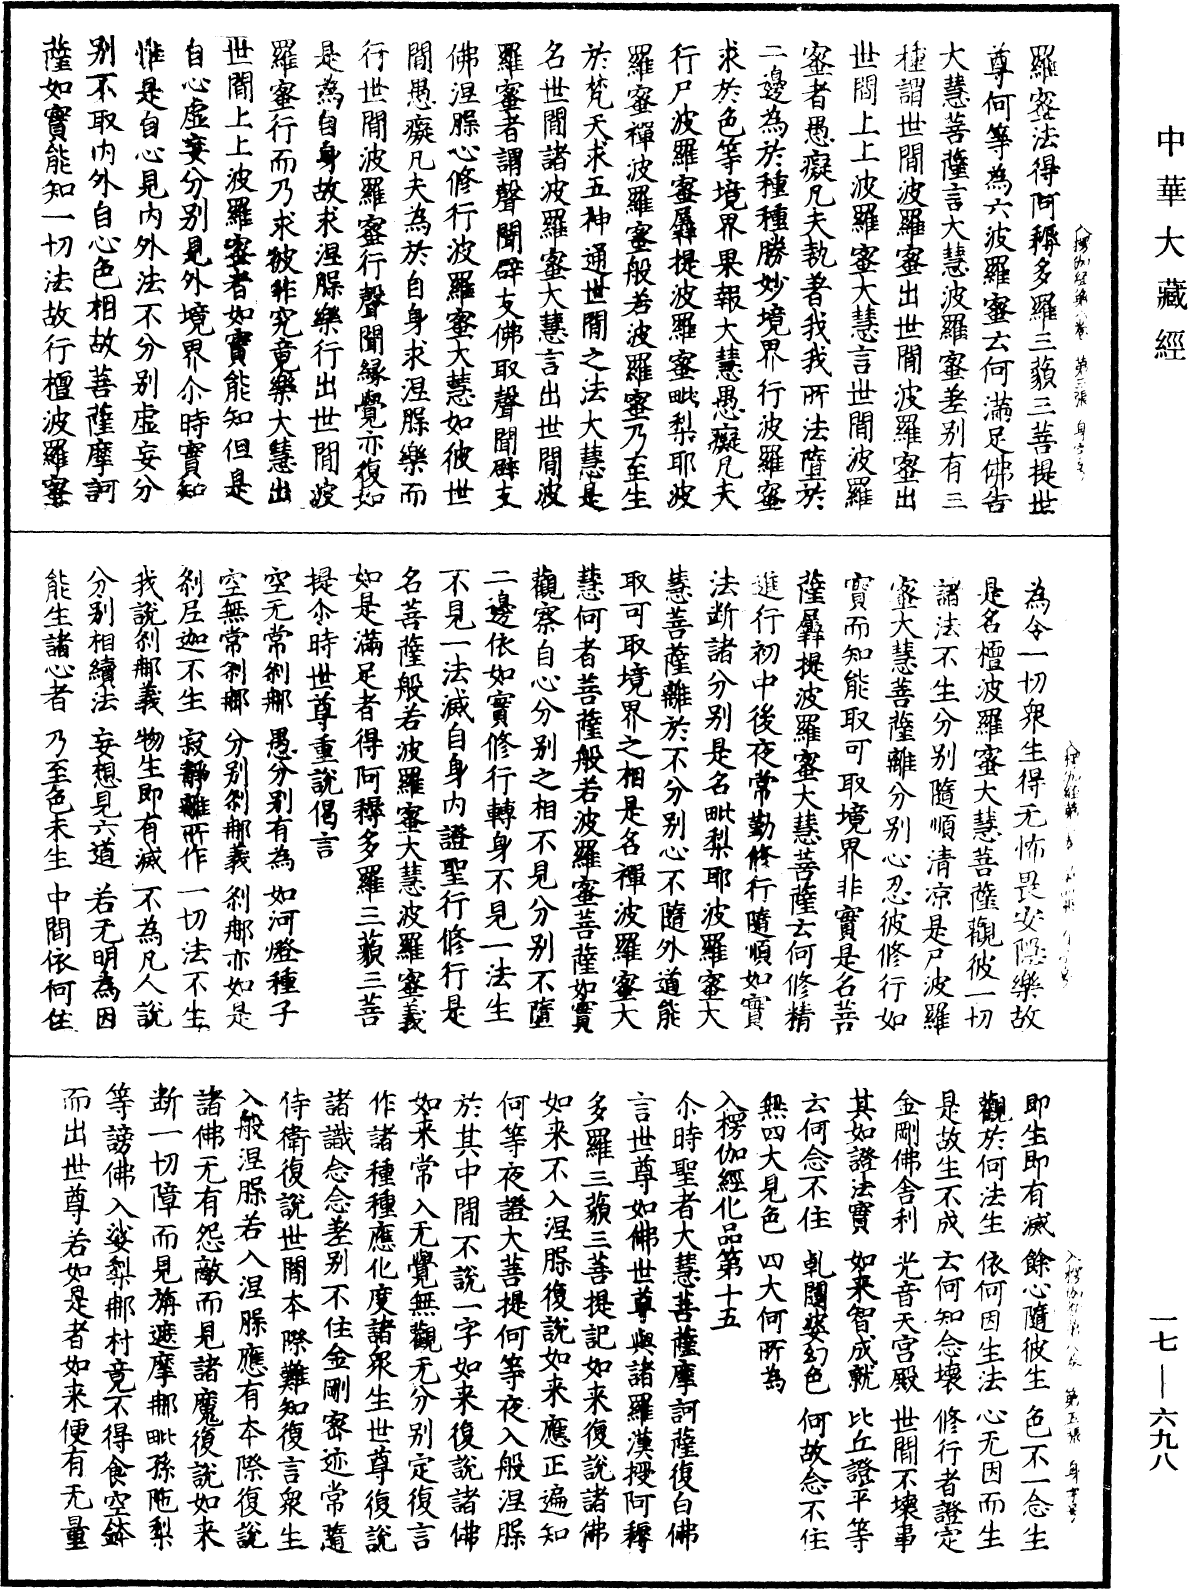 中華大藏經
羅蜜法得阿耨多羅三藐三菩提世
尊何等為六波羅蜜云何滿足佛告
大慧菩薩言大慧波羅蜜差别有三
種謂世間波羅蜜出世間波羅蜜出
世間上上波羅蜜大慧言世間波羅
蜜者愚癡凡夫執著我我所法墮於
二邊為於種種勝妙境界行波羅蜜
求於色等境界果報大慧愚癡凡夫
行尸波羅蜜羼提波羅蜜毗梨耶波
羅蜜禪波羅蜜般若波羅蜜乃至生
於梵天求五神通世間之法大慧是
名世間諸波羅蜜大慧言出世間波
羅蜜者謂聲聞辟支佛取聲聞辟支
佛涅槃心修行波羅蜜大慧如彼世
間愚癡凡夫為於自身求涅槃樂而
行世間波羅蜜行聲聞緣覺亦復如
是為自身故求涅槃樂行出世間波
羅蜜行而乃求彼非究竟樂大慧出
世間上上波羅蜜者如實能知但是
自心虛妄分别見外境界尒時實知
惟是自心見内外法不分别虛妄分
别不取内外自心色相故菩薩摩訶
薩如實能知一切法故行檀波羅蜜
為令一切衆生得无怖畏安隱樂故
是名檀波羅蜜大慧菩薩觀彼一切
諸法不生分别隨順清涼是尸波羅
蜜大慧菩薩離分别心忍彼修行如
實而知能取可取境界非實是名菩
薩羼提波羅蜜大慧菩薩云何修精
進行初中後夜常勤修行隨順如實
法斷諸分别是名毗梨耶波羅蜜大
慧菩薩離於不分别心不隨外道能
取可取境界之相是名禪波羅蜜大
慧何者菩薩般若波羅蜜菩薩如實
觀察自心分别之相不見分别不墮
二邊依如實修行轉身不見一法生
不見一法滅自身内證聖行修行是
名菩薩般若波羅蜜大慧波羅蜜義
如是滿足者得阿耨多羅三藐三菩
提尒時世尊重說偈言
空无常剎那　愚分别有為　如河燈種子
空無常剎那　分别剎那義　剎那亦如是
剎尼迦不生　寂靜離所作　一切法不生
我說剎那義　物生即有滅　不為凡人說
分别相續法　妄想見六道　若无明為因
能生諸心者　乃至色未生　中間依何住
即生即有滅　餘心隨彼生　色不一念生
觀於何法生　依何因生法　心无因而生
是故生不成　云何知念壞　修行者證定
金剛佛舍利　光音天宮殿　世間不壞事
其如證法實　如來智成就　比丘證平等
云何念不住　乹闥婆幻色　何故念不住
無四大見色　四大何所為
入楞伽經化品第十五
尒時聖者大慧菩薩摩訶薩復白佛
言世尊如佛世尊與諸羅漢授阿耨
多羅三藐三菩提記如來復說諸佛
如來不入涅槃復說如來應正遍知
何等夜證大菩提何等夜入般涅槃
於其中間不說一字如來復說諸佛
如來常入无覺無觀无分别定復言
作諸種種應化度諸衆生世尊復說
諸識念念差别不住金剛密迹常隨
侍衛復說世間本際難知復言衆生
入般涅槃若入涅槃應有本際復說
諸佛无有怨敵而見諸魔復說如來
斷一切障而見旃遮摩那毗孫陁梨
等謗佛入娑梨那村竟不得食空鉢
而出世尊若如是者如來便有无量
一七—六九八